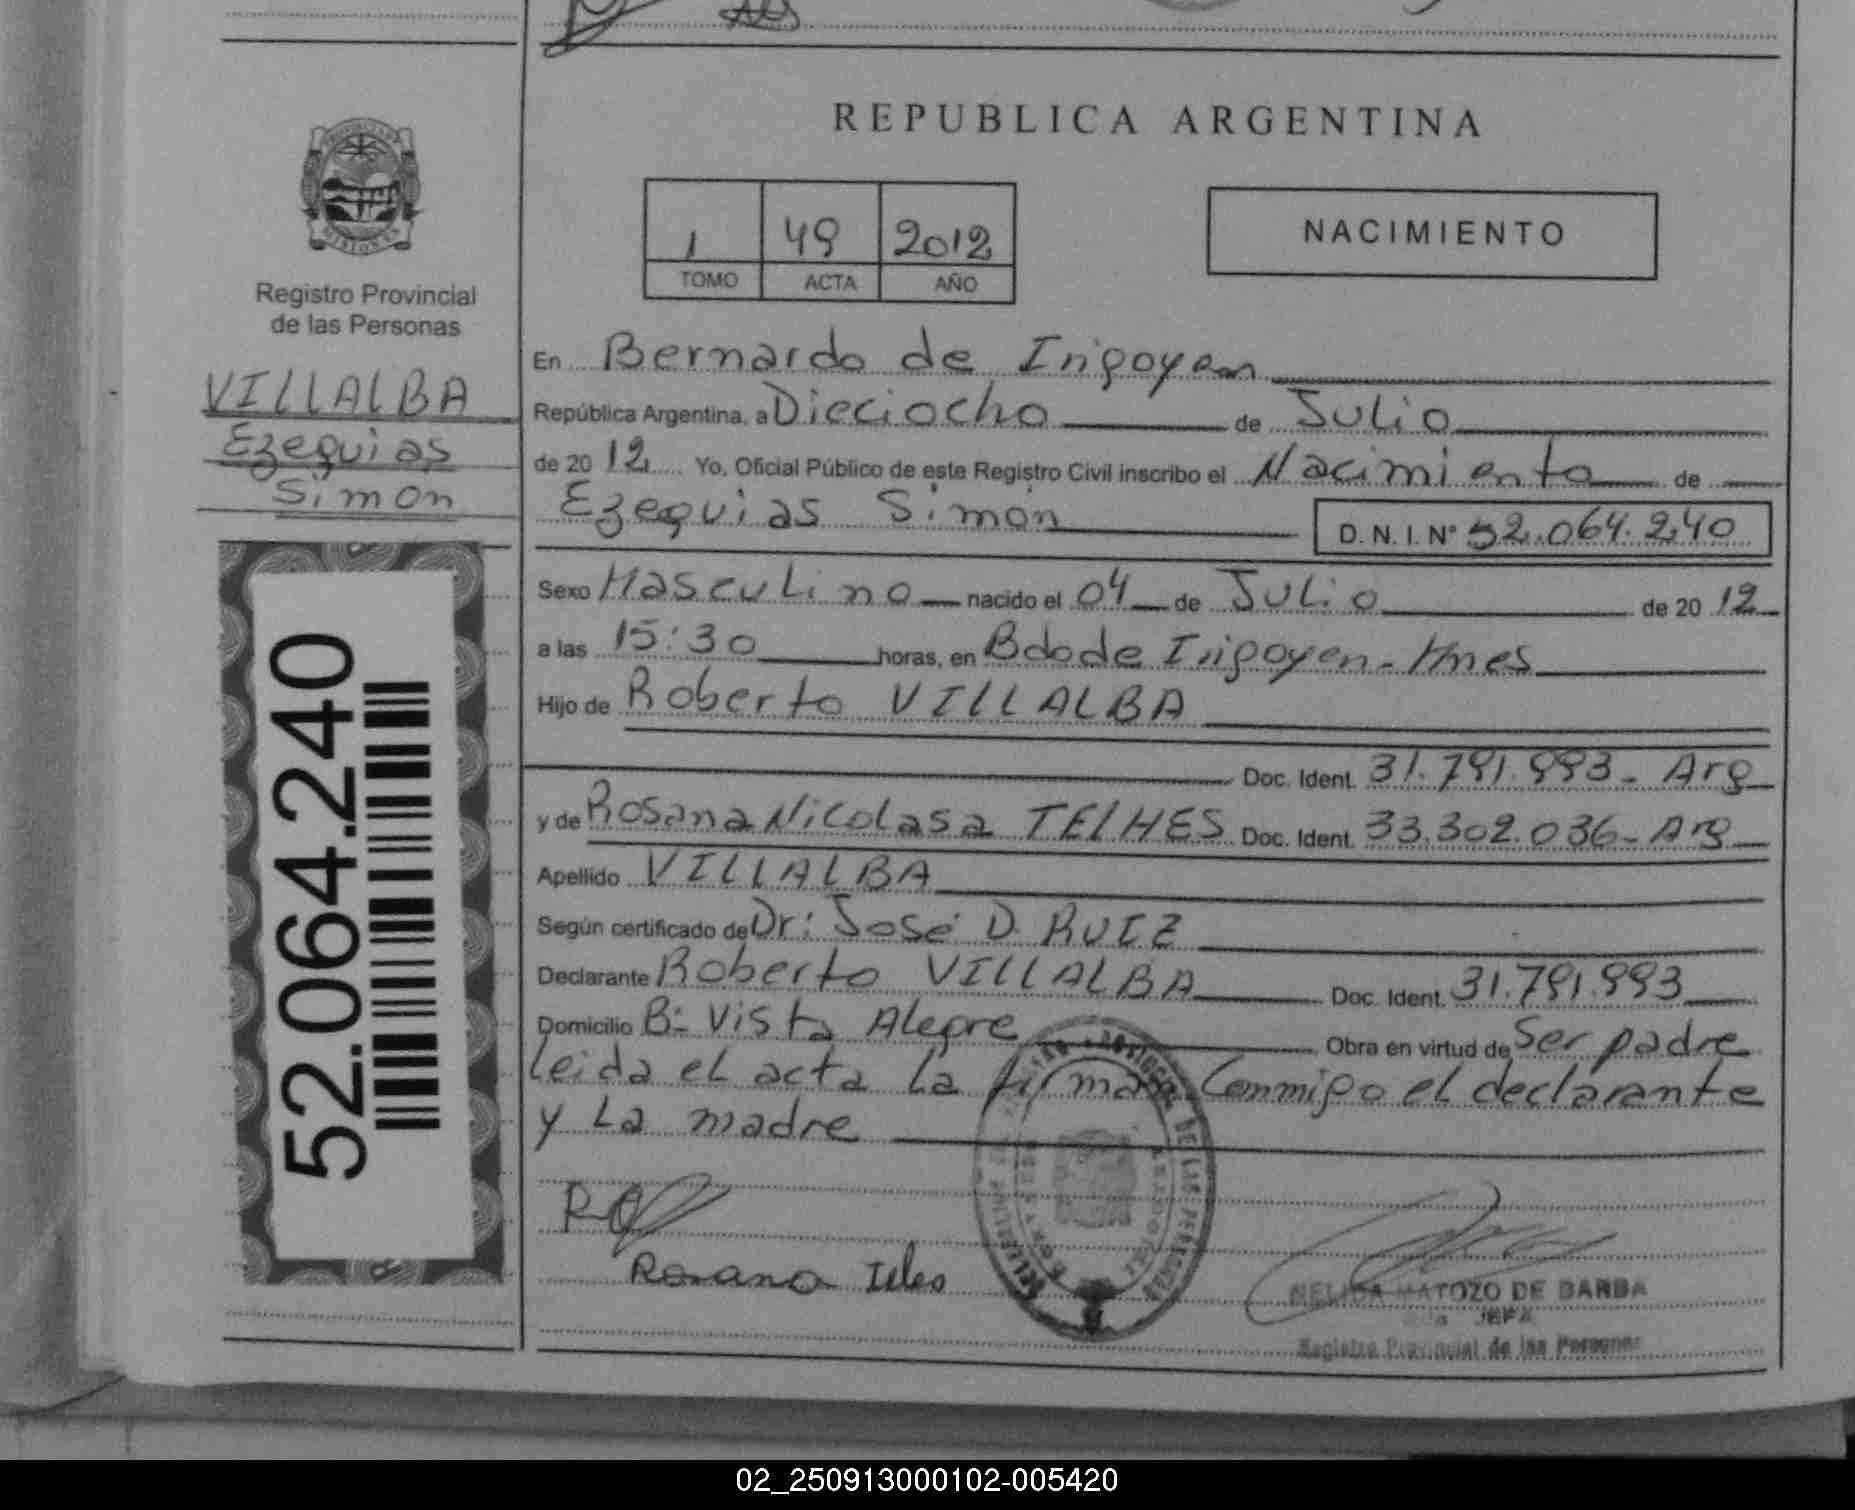 REPUBLICA ARGENTINA
PROVINCIA DE MISIONES
Registro Provincial
de las Personas
VILLALBA
Ezequias
Simon
52.064.240
1 49 2012
TOMO ACTA AÑO
NACIMIENTO
En Bernardo de Irigoyen
República Argentina, a Dieciocho de Julio
de 2012 Yo, Oficial Público de este Registro Civil inscribo el Nacimiento de
Ezequias Simón D. N. I. N° 52.064.240
Sexo Masculino nacido el 04 de Julio de 2012
a las 15:30 horas, en Bdo de Irigoyen - Mnes
Hijo de Roberto VILLALBA
Doc. Ident. 31.791.993 - Arg
y de Rosana Nicolasa TELHES Doc. Ident. 33.302.036 - Arg
Apellido VILLALBA
Según certificado de Dr: José D. RUIZ
Declarante Roberto VILLALBA Doc. Ident. 31.791.993
Domicilio B: Vista Alegre Obra en virtud de Ser padre
Leida el acta la firman Conmigo el declarante
y La madre
Rosana
NELIDA MATOZO DE BARBA
JEFA
Registro Provincial de las Personas
02_250913000102-005420